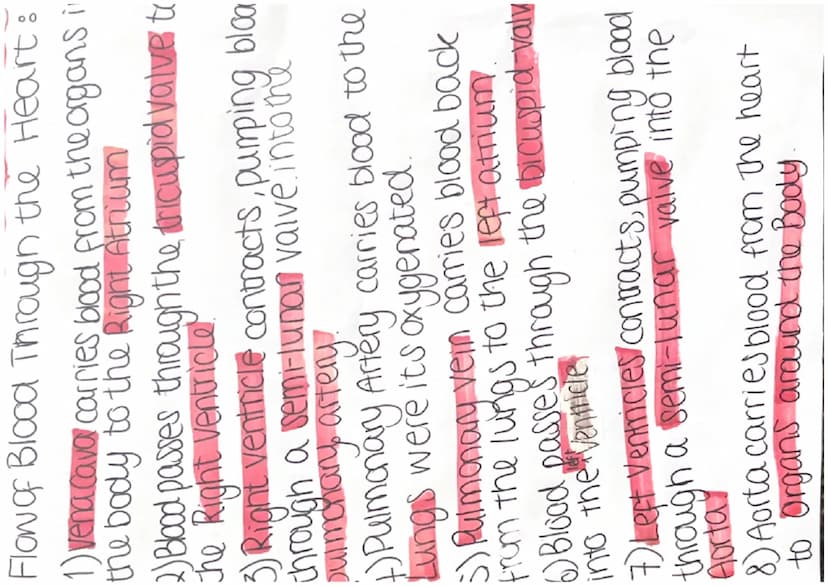 Flow of Blood Through the Heart:
1) Vena Cava carries blood from the organs i
the body to the Right Atrium
2) Blood passes through the tricuspid valve to
the Right Ventricle.
3) Right Ventricle contracts, pumping bloo
through a semi-lunar valve into the
pulmonary artery.
4) Pulmonary Artery carries blood to the
Lungs were its oxygenated.
5) Pulmonary vein carries blood back
from the lungs to the left atrium.
6) Blood passes through the bicuspid valv
into the left ventricle
7) Left Ventricles contracts, pumping blood
through a semi-lunar valve into the
Aorta
8) Aorta carries blood from the heart
to organs around the Body.